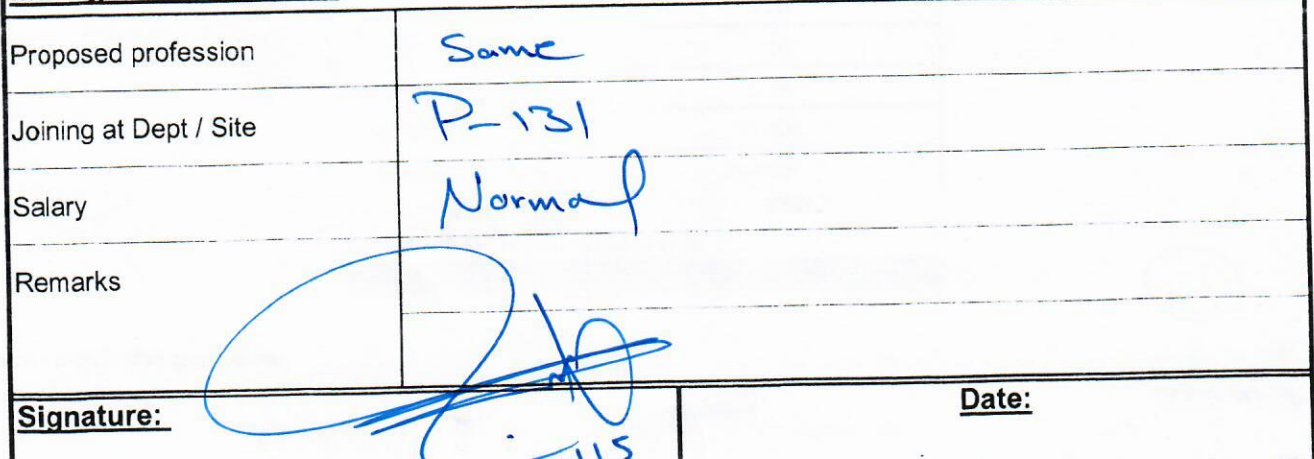 Proposed profession Same
Joining at Dept / Site P-131
Salary Normal
Remarks
Signature: Date: